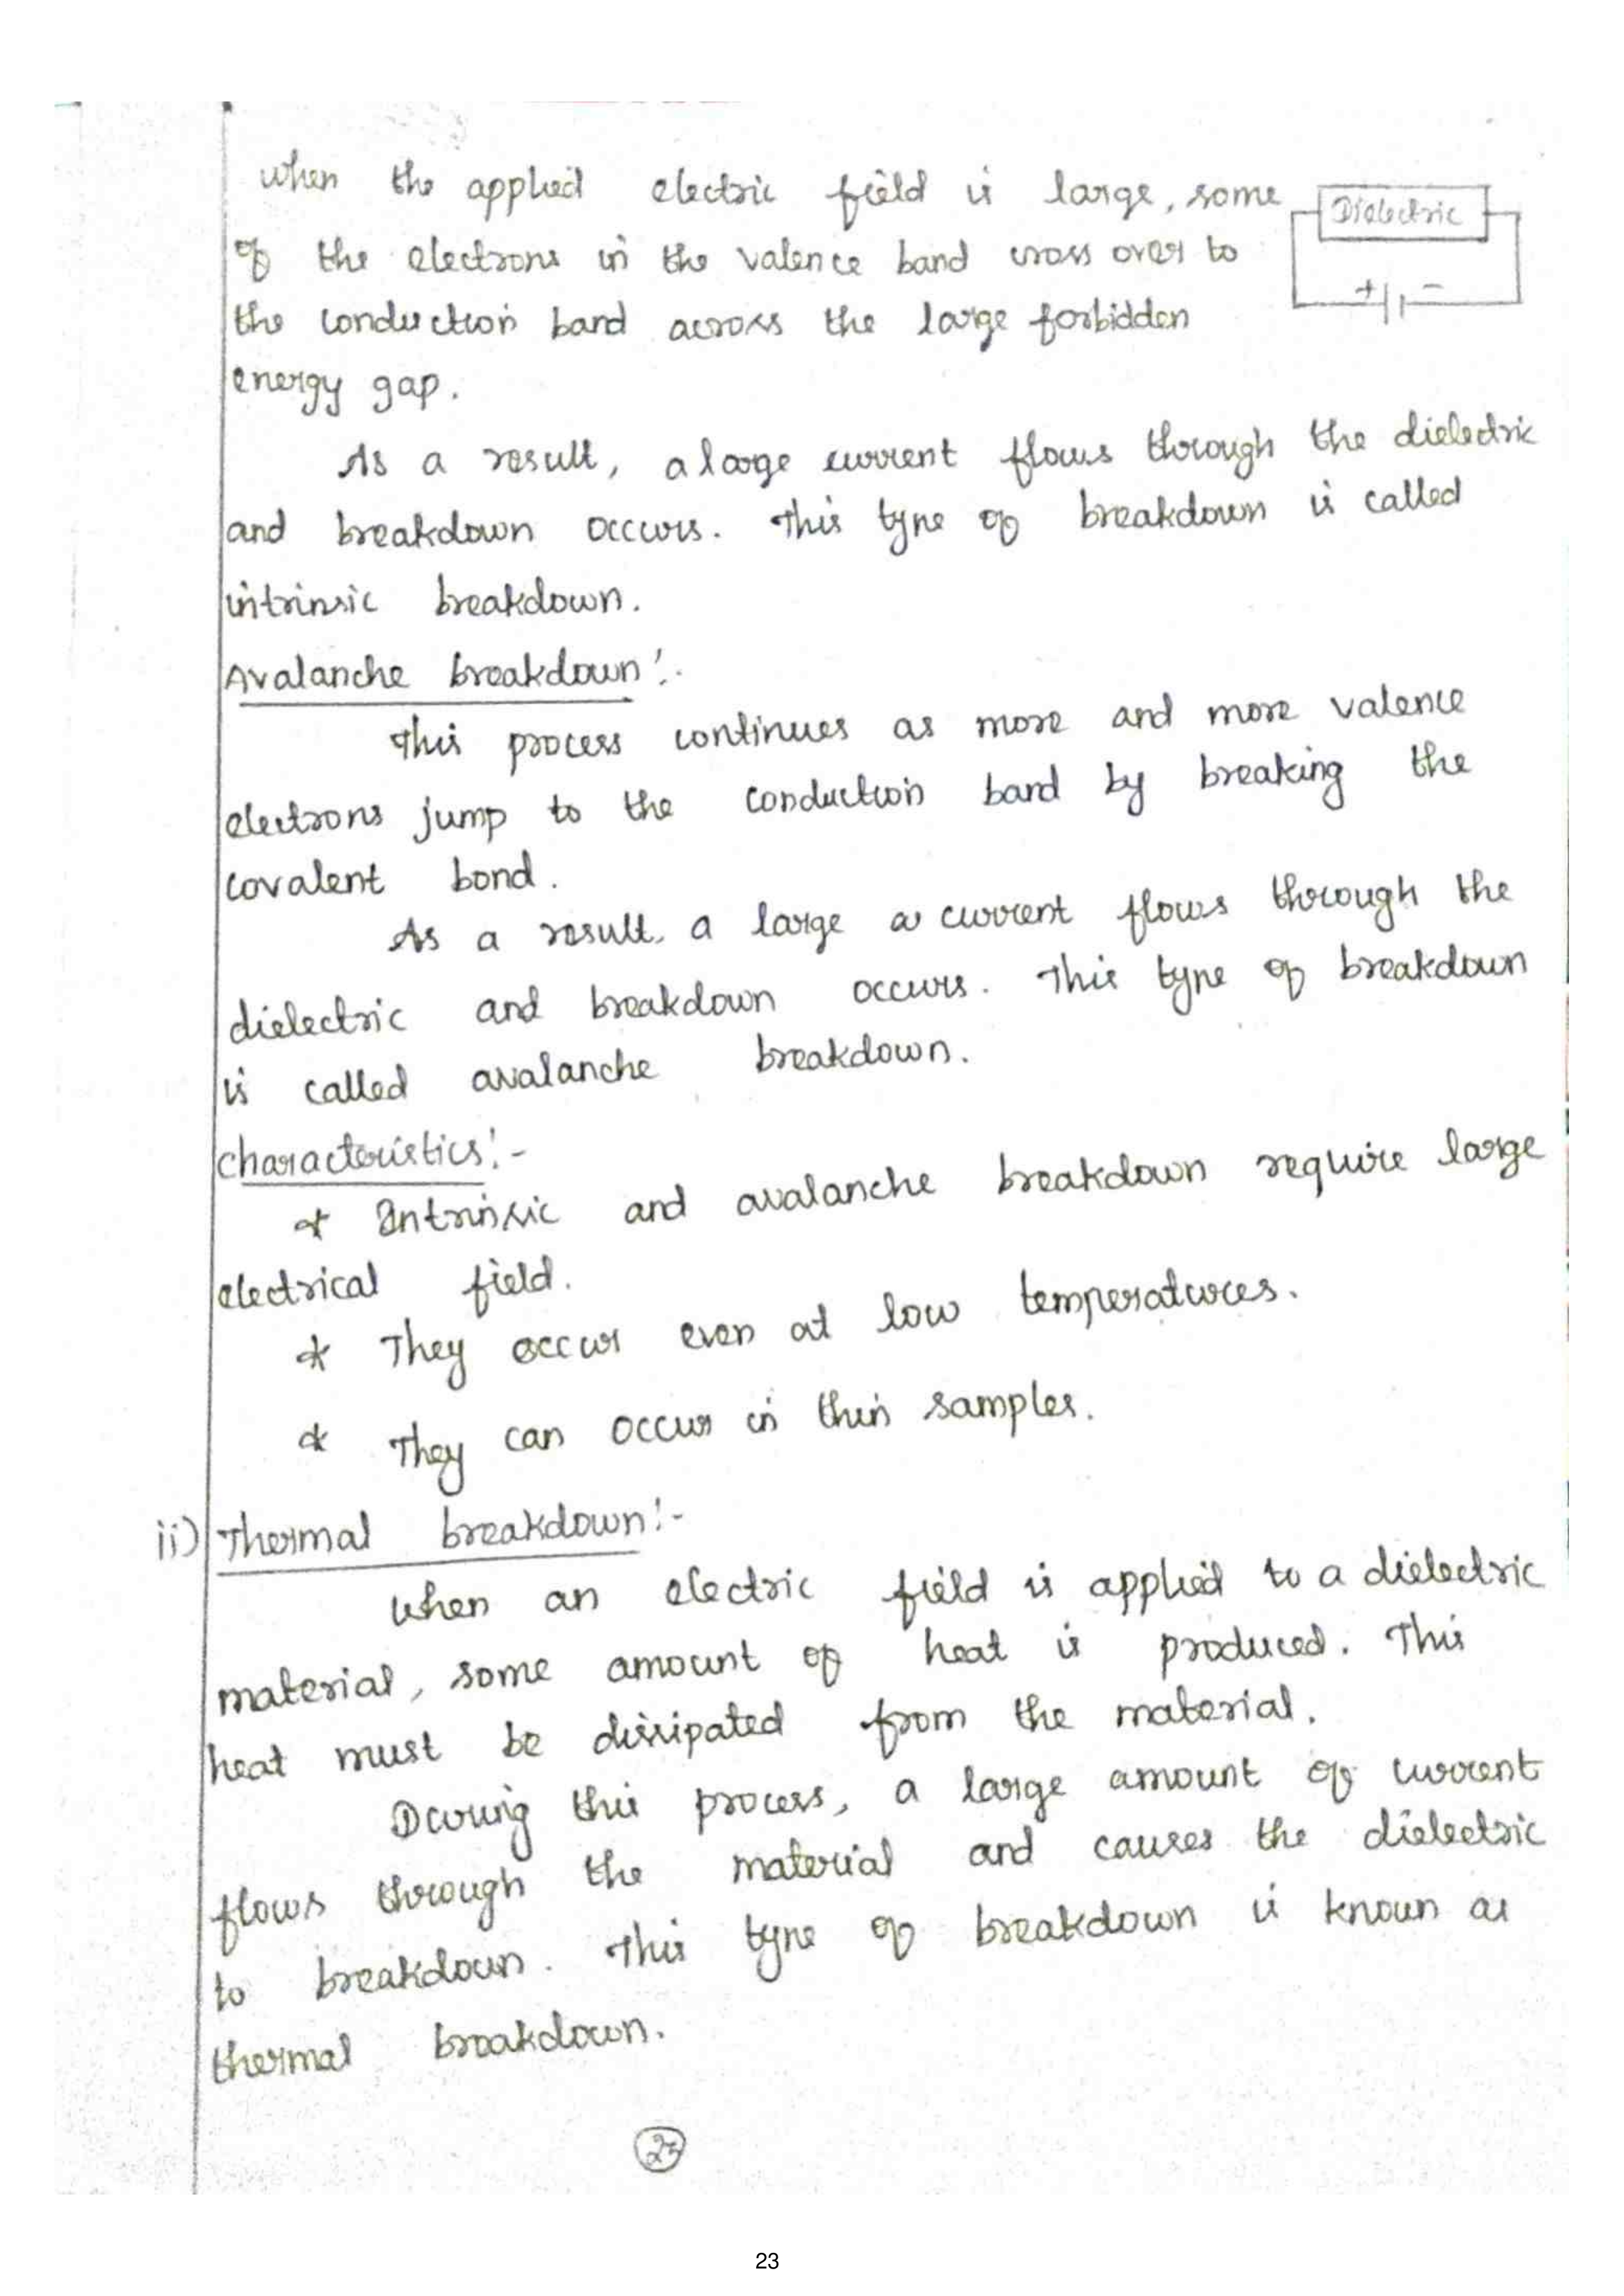 when the applied electric field is large, some
Dielectric
of the electrons in the valence band cross over to
+ -
the conduction band across the large forbidden
energy gap.
As a result, a large current flows through the dielectric
and breakdown occurs. This type of breakdown is called
intrinsic breakdown.
Avalanche breakdown:-
This process continues as more and more valence
electrons jump to the conduction band by breaking the
covalent bond.
As a result, a large a current flows through the
dielectric and breakdown occurs. This type of breakdown
is called avalanche breakdown.
characteristics:-
* Intrinsic and avalanche breakdown require large
electrical field.
* They occur even at low temperatures.
* They can occur in thin samples.
ii) Thermal breakdown:-
When an electric field is applied to a dielectric
material, some amount of heat is produced. This
heat must be dissipated from the material.
During this process, a large amount of current
flows through the material and causes the dielectric
to breakdown. This type of breakdown is known as
thermal breakdown.
23
23